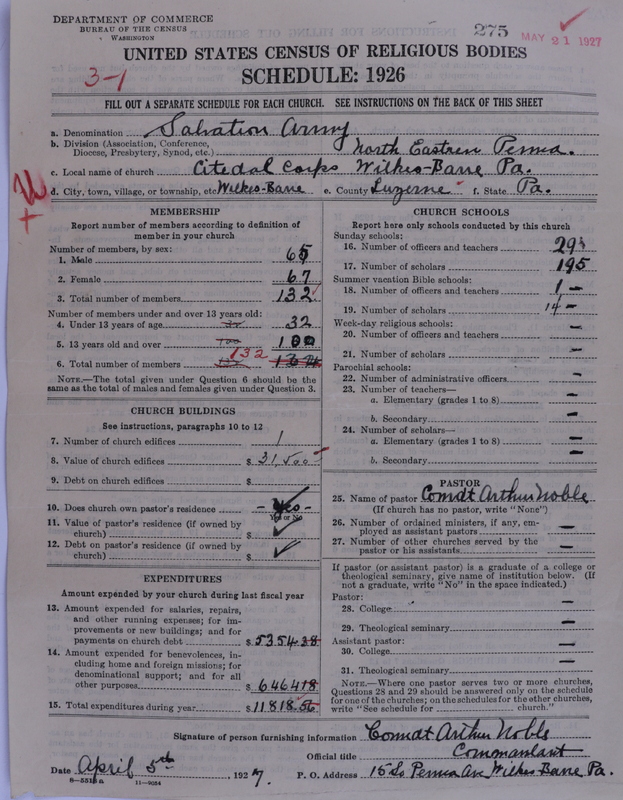 DEPARTMENT OF COMMERCE
BUREAU OF THE CENSUS
WASHINGTON
275
MAY 21 1927
3-1
UNITED STATES CENSUS OF RELIGIOUS BODIES
SCHEDULE: 1926
FILL OUT A SEPARATE SCHEDULE FOR EACH CHURCH. SEE INSTRUCTIONS ON THE BACK OF THIS SHEET
a. Denomination Salvation Army
b. Division (Association, Conference, Diocese, Presbytery, Synod, etc.) North Eastren Penna.
c. Local name of church Citedal Corps Wilkes-Barre Pa.
d. City, town, village, or township, etc Wilkes-Barre e. County Luzerne f. State Pa.
MEMBERSHIP
Report number of members according to definition of
member in your church
Number of members, by sex:
1. Male 65
2. Female 67
3. Total number of members 132
Number of members under and over 13 years old:
4. Under 13 years of age 32
5. 13 years old and over 100
6. Total number of members 132
NOTE.—The total given under Question 6 should be the
same as the total of males and females given under Question 3.
CHURCH BUILDINGS
See instructions, paragraphs 10 to 12
7. Number of church edifices 1
8. Value of church edifices $ 31,500
9. Debt on church edifices $
10. Does church own pastor's residence Yes
Yes or No
11. Value of pastor's residence (if owned by
church) $
12. Debt on pastor's residence (if owned by
church) $
EXPENDITURES
Amount expended by your church during last fiscal year
13. Amount expended for salaries, repairs,
and other running expenses; for im-
provements or new buildings; and for
payments on church debt $ 5354.38
14. Amount expended for benevolences, in-
cluding home and foreign missions; for
denominational support; and for all
other purposes $ 6464 18
15. Total expenditures during year $ 11818.56
CHURCH SCHOOLS
Report here only schools conducted by this church
Sunday schools:
16. Number of officers and teachers 29
17. Number of scholars 195
Summer vacation Bible schools:
18. Number of officers and teachers 1 –
19. Number of scholars 14 –
Week-day religious schools:
20. Number of officers and teachers –
21. Number of scholars –
Parochial schools:
22. Number of administrative officers –
23. Number of teachers—
a. Elementary (grades 1 to 8) –
b. Secondary –
24. Number of scholars—
a. Elementary (grades 1 to 8) –
b. Secondary –
PASTOR
25. Name of pastor Comdt Arthur Noble
(If church has no pastor, write "None")
26. Number of ordained ministers, if any, em-
ployed as assistant pastors –
27. Number of other churches served by the
pastor or his assistants –
If pastor (or assistant pastor) is a graduate of a college or
theological seminary, give name of institution below. (If
not a graduate, write "No" in the space indicated.)
Pastor:
28. College –
29. Theological seminary –
Assistant pastor:
30. College –
31. Theological seminary
NOTE.—Where one pastor serves two or more churches,
Questions 28 and 29 should be answered only on the schedule
for one of the churches; on the schedules for the other churches,
write "See schedule for church."
Signature of person furnishing information Comdt Arthur Noble
Official title Commandant
Date April 5th, 1927. P. O. Address 15 So Penna Av. Wilkes-Barre Pa.
11—9084